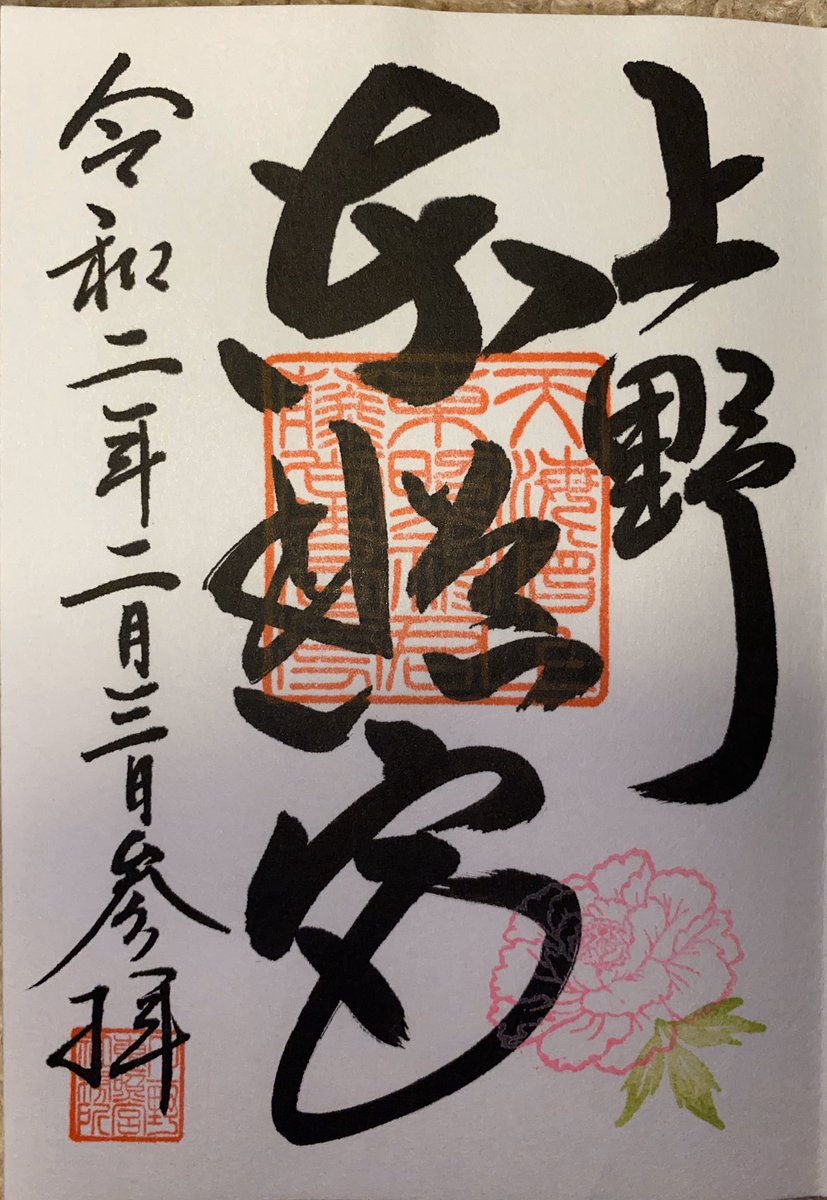 上野
東照宮
天海僧正
東照神君
令和二年二月三日参拝
上野
東照宮